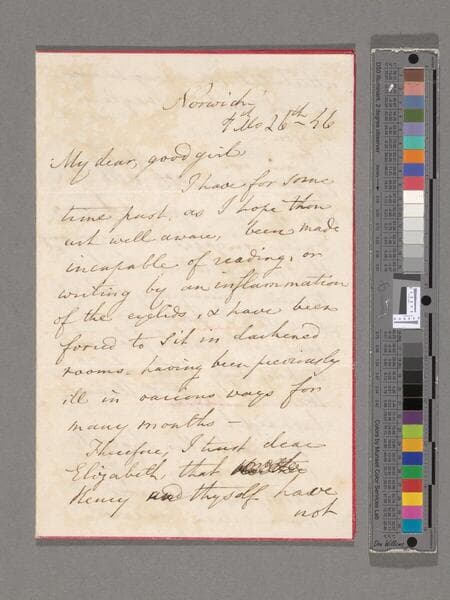 Norwich,
4th Mo 26th - 46
My dear, good girl
I have for some
time past, as I hope thou
art well aware, been made
incapable of reading, or
writing by an inflammation
of the eyelids, & have been
forced to sit in darkened
rooms, having been previously
ill in various ways for
many months -
Therefore, I trust dear
Elizabeth, that
Henry and thyself have
not